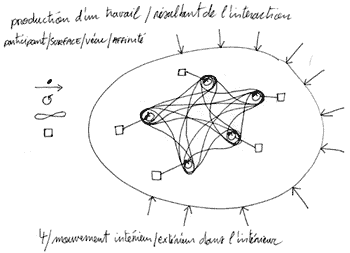 production d'un travail / résultant de l'interaction
participant/SURFACE/vécu/AFFINITÉ
4/mouvement intérieur/extérieur dans l'intérieur